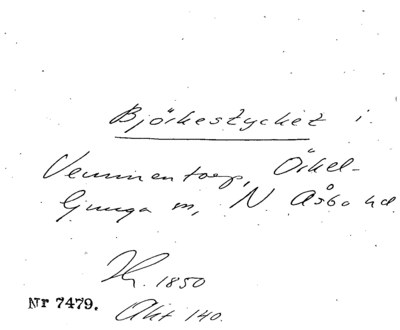 Björkestycket i
Vemmentorp, Örkel-
ljunga sn, N Åsbo hd.
Kr. 1850
Nr 7479.
Akt 140.